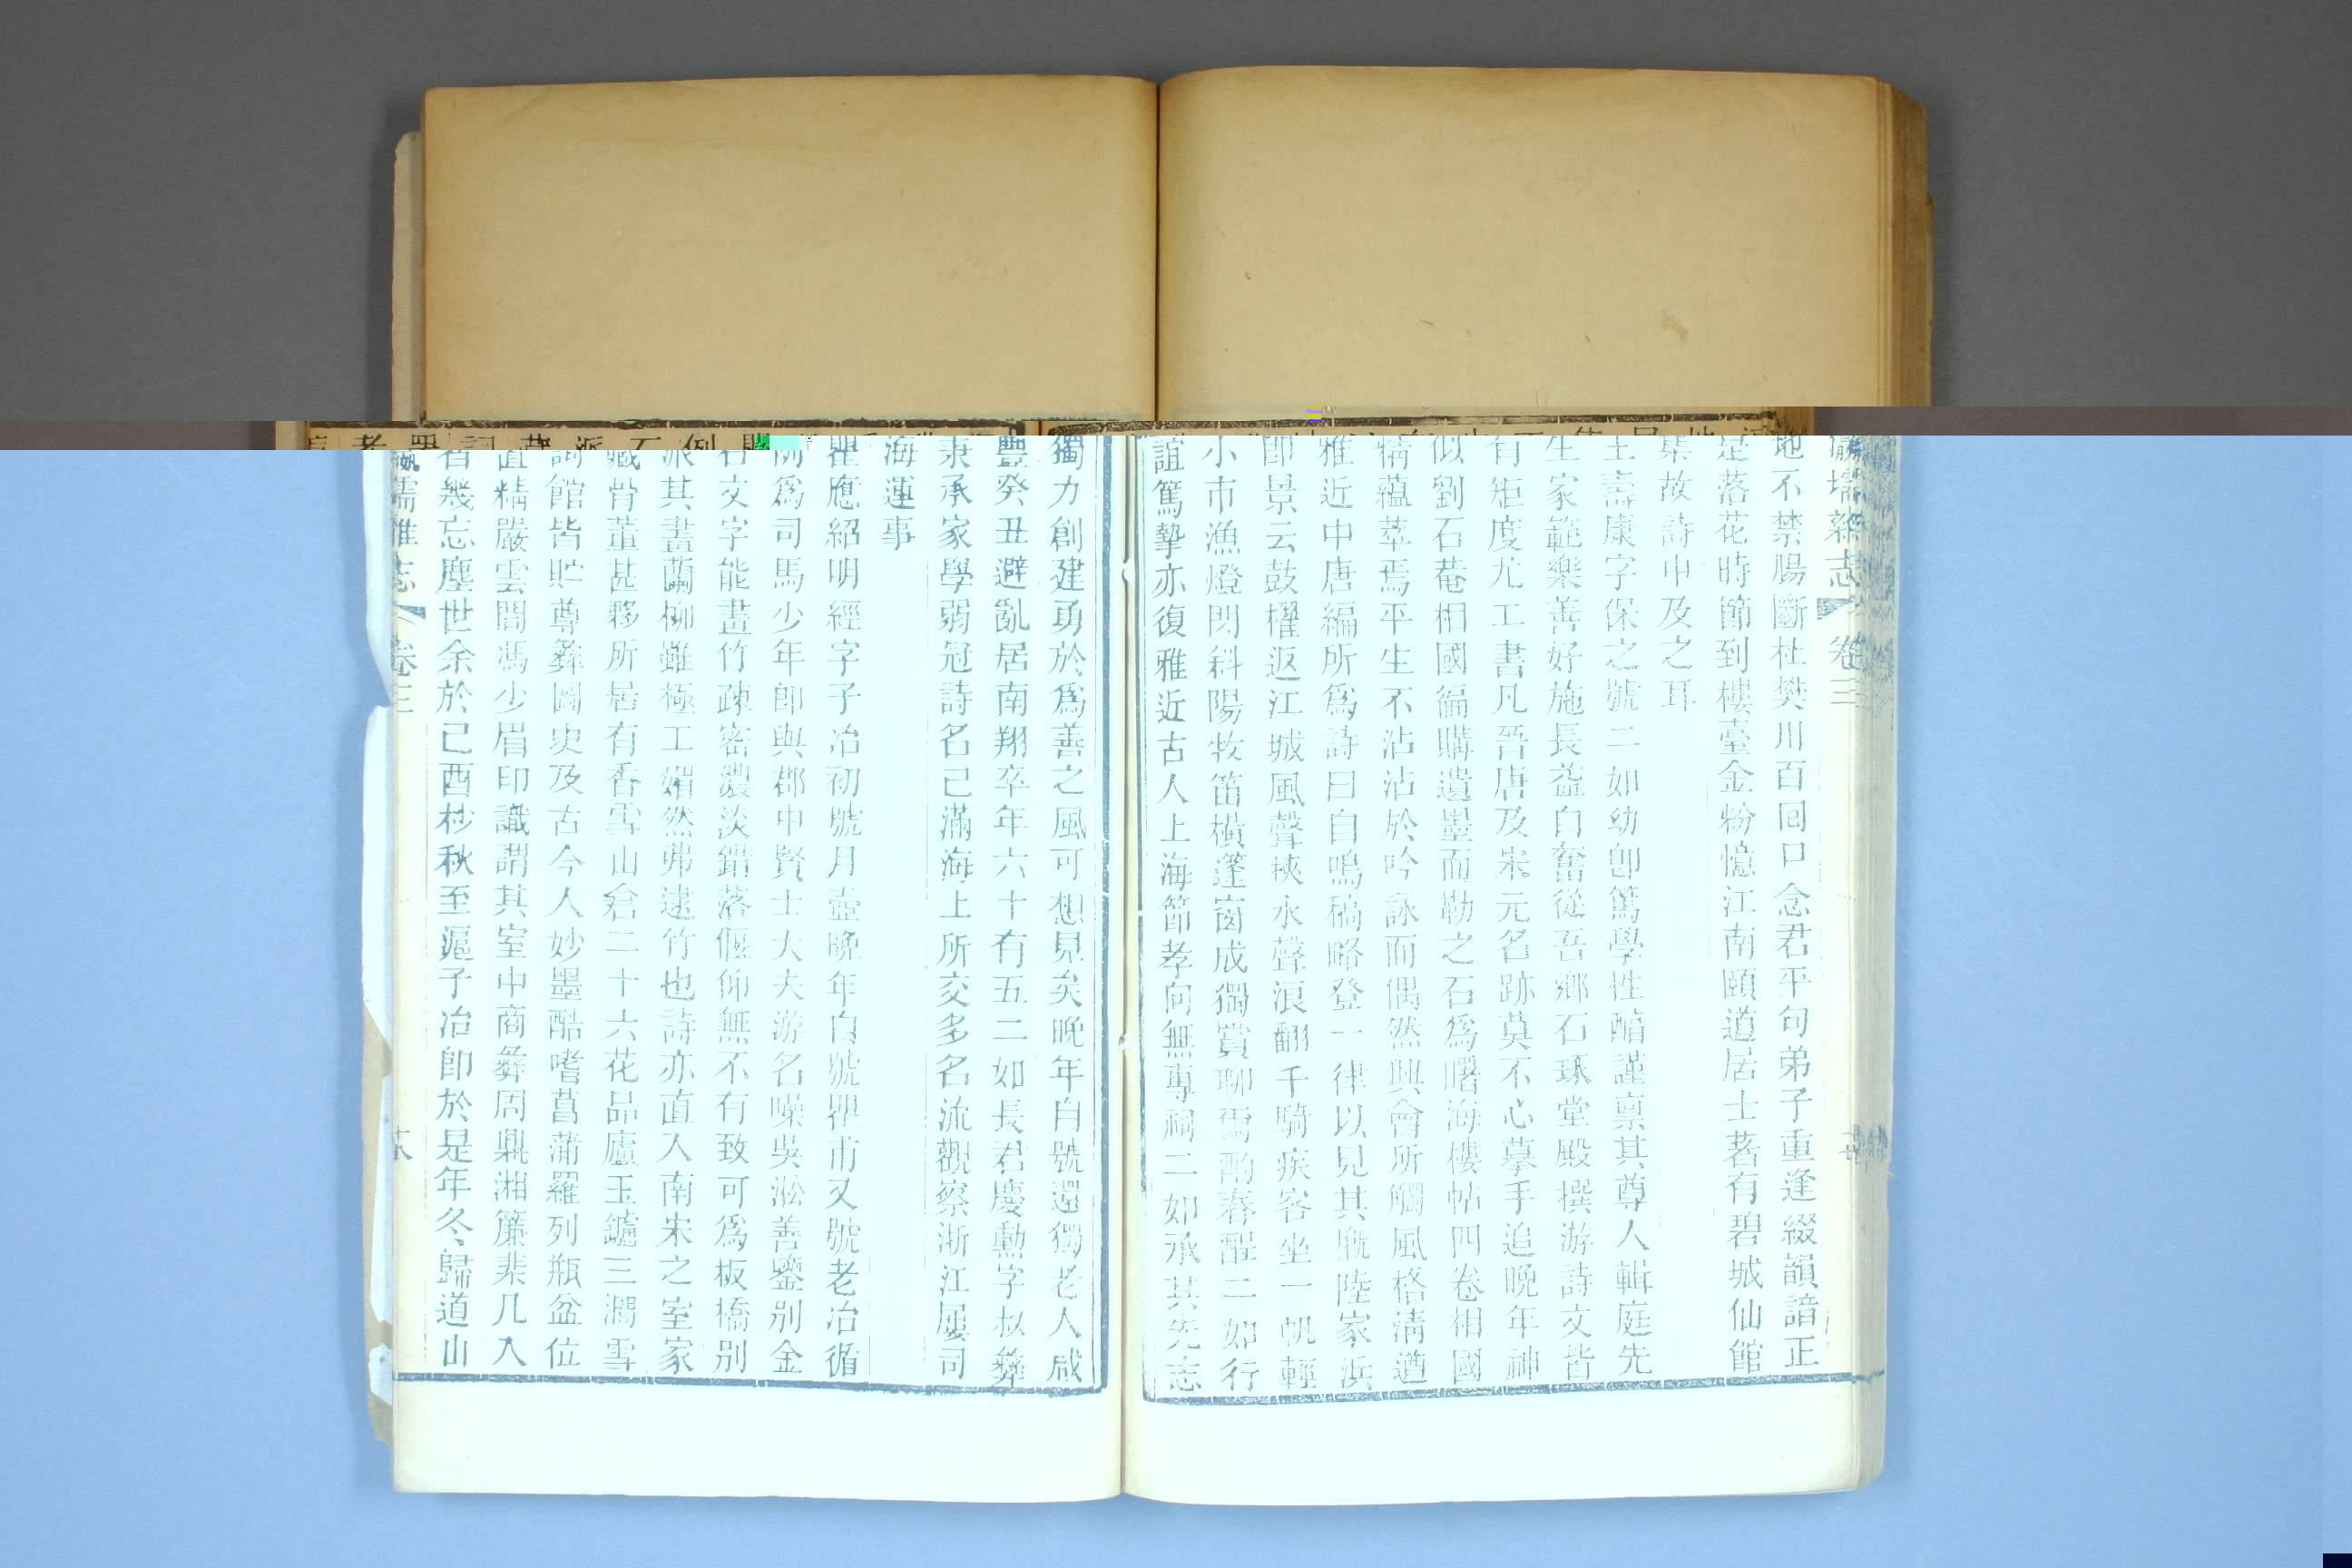 瀛壖雜志 卷三
地不禁腸斷杜樊川百回口念君平句弟子重逢綴韻諳正
是落花時節到樓臺金粉憶江南頤道居士著有碧城仙館
集故詩中及之耳
王壽康字保之號二如幼卽篤學性醕謹稟其尊人輯庭先
生家範樂善好施長益自奮從吾鄉石琢堂殿撰游詩文皆
有矩度尤工書凡晉唐及宋元名跡莫不心摹手追晚年神
似劉石菴相國徧購遺墨而勒之石爲曙海樓帖四卷相國
精蘊萃焉平生不沾沾於吟詠而偶然興會所觸風格淸遒
雅近中唐編所爲詩曰自鳴稿略登一律以見其槪陸家浜
卽景云鼓櫂返江城風聲挾水聲浪翻千騎疾客坐一帆輕
小市漁燈閃斜陽牧笛橫篷窗成獨賞聊爾酌春醒二如行
誼篤摯亦復雅近古人上海節孝向無專祠二如承其先志
獨力創建勇於爲善之風可想見矣晚年自號還獨老人咸
豐癸丑避亂居南翔卒年六十有五二如長君慶勳字叔彝
秉承家學弱冠詩名已滿海上所交多名流觀察浙江屢司
海運事
瞿應紹明經字子冶初號月壺晚年自號瞿甫又號老冶循
例爲司馬少年卽與郡中賢士大夫游名噪吳淞善鑒别金
石文字能畫竹疎密濃淡錯落偃仰無不有致可爲板橋别
派其畫蘭柳雖極工媚然弗逮竹也詩亦直入南宋之室家
藏骨董甚夥所居有香雪山倉二十六花品廬玉鑪三澗雪
詞館皆貯尊彝圖史及古今人妙墨酷嗜菖蒲羅列瓶盆位
置精嚴雲間馮少眉印識謂其室中商彝周鼎湘簾棐几入
者幾忘塵世余於己酉杪秋至滬子冶卽於是年冬歸道山
瀛壖雜志 卷三